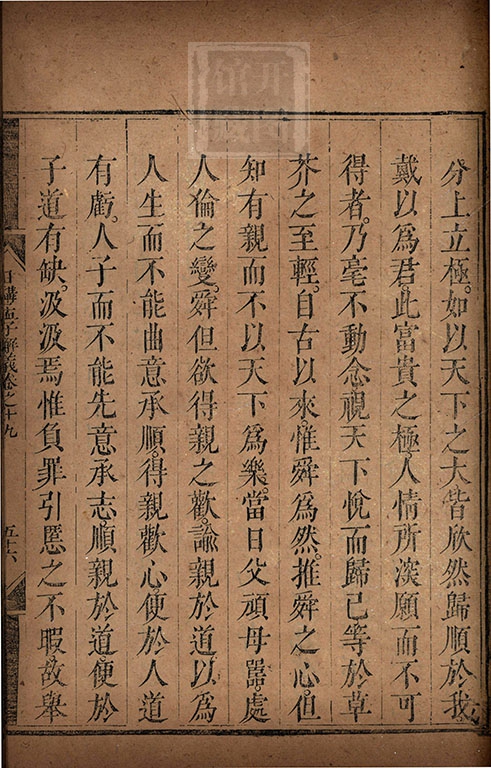 分上立極。如以天下之大皆欣然歸順於我
戴以爲君。此富貴之極。人情所深願而不可
得者。乃毫不動念視天下悅而歸己等於草
芥之至輕。自古以來。惟舜爲然。推舜之心。但
知有親而不以天下爲樂當日父頑母嚚。處
人倫之變。舜但欲得親之歡。諭親於道以爲
人生而不能曲意承順。得親歡心。便於人道
有虧。人子而不能先意承志。順親於道便於
子道有缺。汲汲焉惟負罪引慝之不暇故舉
日講孟子解義卷之十九
五十六